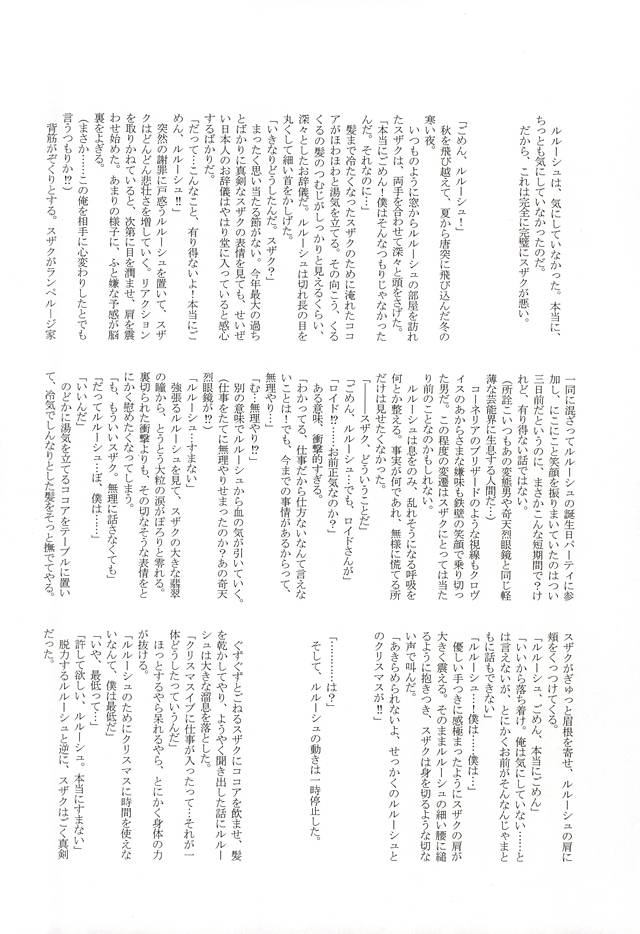 ルルーシュは、気にしていなかった。本当に、
ちっとも気にしていなかったのだ。
だから、これは完全に完璧にスザクが悪い。
「ごめん、ルルーシュ！」
秋を飛び越えて、夏から唐突に飛び込んだ冬の
寒い夜。
いつものように窓からルルーシュの部屋を訪れ
たスザクは、両手を合わせて深々と頭をさげた。
「本当にごめん！僕はそんなつもりじゃなかった
んだ。それなのに…」
髪まで冷たくなったスザクのために淹れたココ
アがほわほわと湯気を立てる。その向こう、くる
くるの髪のつむじがしっかりと見えるくらい、
深々としたお辞儀だ。ルルーシュは切れ長の目を
丸くして細い首をかしげた。
「いきなりどうしたんだ。スザク？」
まったく思い当たる節がない。今年最大の過ち
とばかりに真剣なスザクの表情を見ても、せいぜ
い日本人のお辞儀はやはり堂に入っていると感心
するばかりだ。
「だって…こんなこと、有り得ないよ！本当にご
めん、ルルーシュ!!」
突然の謝罪に戸惑うルルーシュを置いて、スザ
クはどんどん悲壮さを増していく。リアクション
を取りかねていると、次第に目を潤ませ、肩を震
わせ始めた。あまりの様子に、ふと嫌な予感が脳
裏をよぎる。
（まさか……この俺を相手に心変わりしたとでも
言うつもりか!?）
背筋がぞくりとする。スザクがランペルージ家
一同に混ざってルルーシュの誕生日パーティに参
加し、にこにこと笑顔を振りまいていたのはつい
三日前だというのに、まさかこんな短期間で？け
れど、有り得ない話ではない。
（所詮こいつもあの変態男や奇天烈眼鏡と同じ軽
薄な芸能界に生息する人間だ…）
コーネリアのブリザードのような視線もクロヴ
ィスのあからさまな嫌味も鉄壁の笑顔で乗り切っ
た男だ。この程度の変遷はスザクにとっては当た
り前のことなのかもしれない。
ルルーシュは息をのみ、乱れそうになる呼吸を
何とか整える。事実が何であれ、無様に慌てる所
だけは見せたくなかった。
「――スザク、どういうことだ」
「ごめん、ルルーシュ…でも、ロイドさんが」
「ロイド!?……お前正気なのか？」
ある意味、衝撃的すぎる。
「わかってる、仕事だから仕方ないなんて言えな
いことは！でも、今までの事情があるからって、
無理やり…」
「む…無理やり!?」
別の意味でルルーシュから血の気が引いていく。
（仕事をたてに無理やりせまったのか？あの奇天
烈眼鏡が!?）
「ルルーシュ…すまない」
強張るルルーシュを見て、スザクの大きな翡翠
の瞳から、とうとう大粒の涙がぽろりと零れる。
裏切られた衝撃よりも、その切なそうな表情をと
にかく慰めたくなってしまう。
「も、もういいスザク。無理に話さなくても」
「だってルルーシュ…ぼ、僕は……」
「いいんだ」
のどかに湯気を立てるココアをテーブルに置い
て、冷気でしんなりとした髪をそっと撫でてやる。
スザクがぎゅっと眉根を寄せ、ルルーシュの肩に
頬をくっつけてくる。
「ルルーシュ、ごめん、本当にごめん」
「いいから落ち着け。俺は気にしていない……と
は言えないが、とにかくお前がそんなんじゃまと
もに話もできない」
「ルルーシュ……僕は……僕は…」
優しい手つきに感極まったようにスザクの肩が
大きく震える。そのままルルーシュの細い腰に縋
るように抱きつき、スザクは身を切るような切な
い声で叫んだ。
「あきらめられないよ、せっかくのルルーシュと
のクリスマスが!!」
「…………は？」
そして、ルルーシュの動きは一時停止した。
ぐずぐずとこねるスザクにココアを飲ませ、髪
を乾かしてやり、ようやく聞き出した話にルルー
シュは大きな溜息を落とした。
「クリスマスイブに仕事が入ったって…それが一
体どうしたっていうんだ」
ほっとするやら呆れるやら、とにかく身体の力
が抜ける。
「ルルーシュのためにクリスマスに時間を使えな
いなんて、僕は最低だ」
「いや、最低って…」
「許して欲しい、ルルーシュ。本当にすまない」
脱力するルルーシュと逆に、スザクはごく真剣
だった。